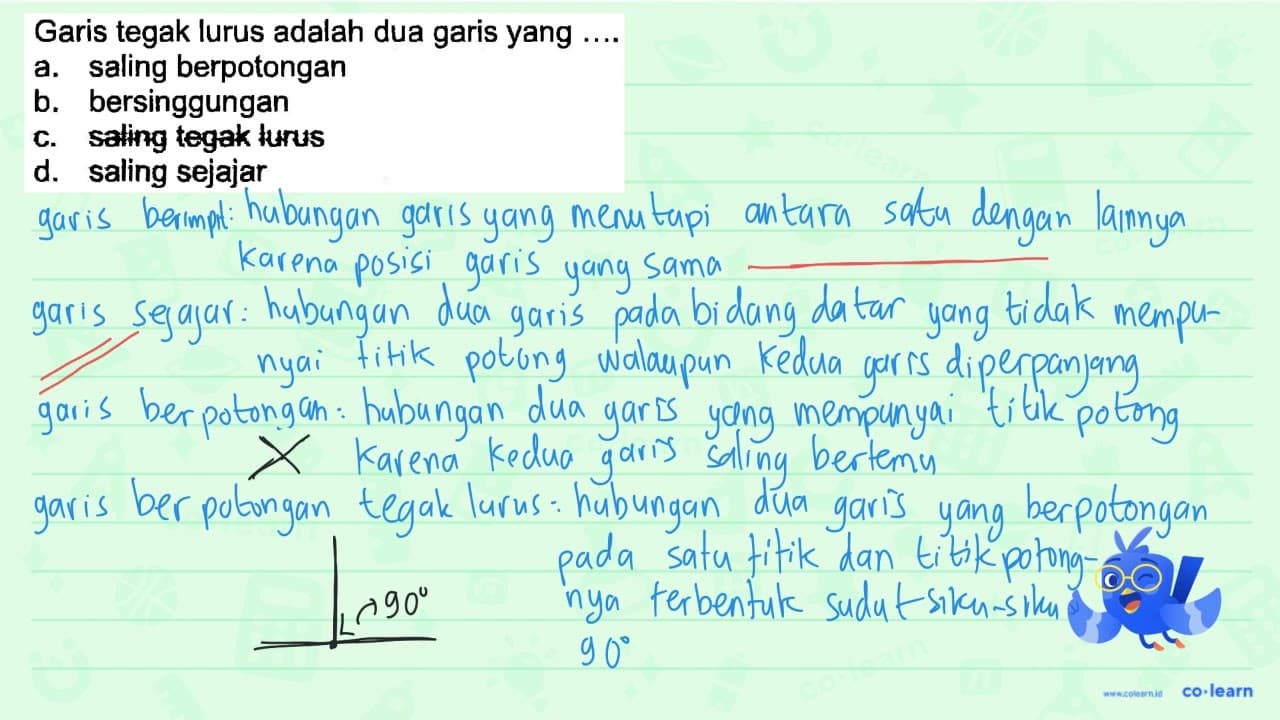 Garis tegak lurus adalah dua garis yang ....
a. saling berpotongan
b. bersinggungan
c. saling tegak lurus
d. saling sejajar
garis berimpit: hubungan garis yang menutupi antara satu dengan lainnya
karena posisi garis yang sama
garis sejajar: hubungan dua garis pada bidang datar yang tidak mempu-
nyai titik potong walaupun kedua garis diperpanjang
garis berpotongan: hubungan dua garis yang mempunyai titik potong
karena kedua garis saling bertemu
garis berpotongan tegak lurus: hubungan dua garis yang berpotongan
pada satu titik dan titik potong-
nya terbentuk sudut siku-siku
90°
90°
www.colearn.id co·learn